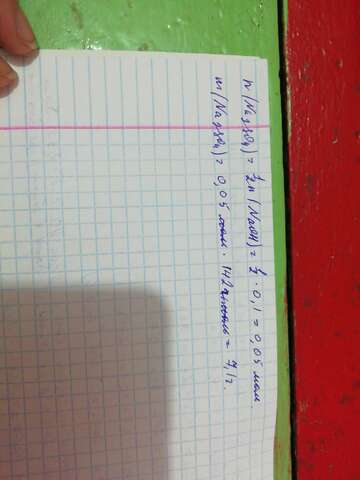 n(Na2SO4) = 1/2 n(NaOH) = 1/2 · 0,1 = 0,05 моль.
m(Na2SO4) = 0,05 моль · 142 г/моль = 7,1 г.